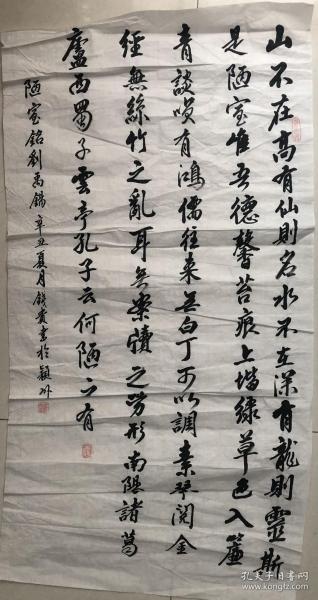 山不在高有仙則名水不在深有龍則靈斯
是陋室惟吾德馨苔痕上堦綠草色入簾
青談笑有鴻儒往來無白丁可以調素琴閱金
經無絲竹之亂耳無案牘之勞形南陽諸葛
廬西蜀子雲亭孔子云何陋之有
陋室銘劉禹錫辛丑夏月錢貴書於潁州
孔夫子旧书网